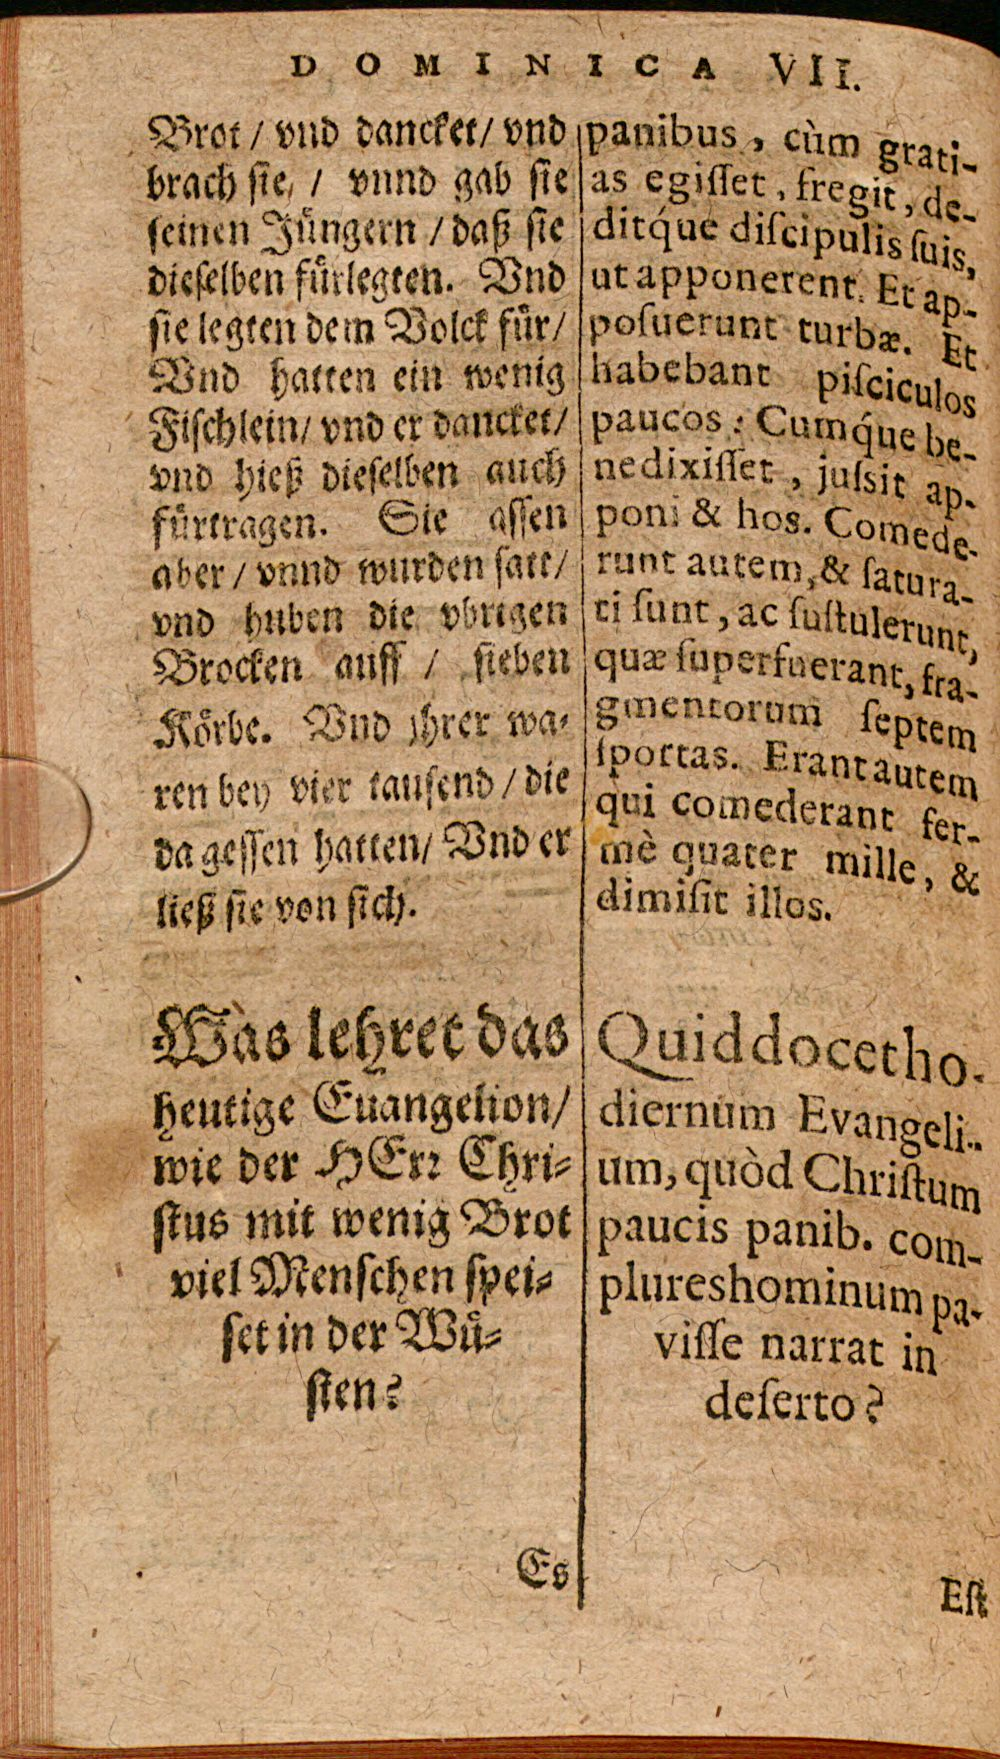 DOMINICA VII.
Brot / vnd dancket / vnd
brach sie, / vnnd gab sie
seinen Jüngern / daß sie
dieselben fürlegten. Vnd
sie legten dem Volck für /
Vnd hatten ein wenig
Fischlein / vnd er dancket /
vnd hieß dieselben auch
fürtragen. Sie assen
aber / vnnd wurden satt /
vnd huben die vbrigen
Brocken auff / sieben
Körbe. Vnd jhrer wa-
ren bey vier tausend / die
da gessen hatten / Vnd er
ließ sie von sich.
Was lehret das
heutige Euangelion /
wie der HErr Chri-
stus mit wenig Brot
viel Menschen spei-
set in der Wü-
sten?
Es
panibus, cùm grati-
as egiſſet, fregit, de-
ditq́ue diſcipulis ſuis,
ut apponerent. Et ap-
poſuerunt turbæ. Et
habebant piſciculos
paucos: Cumq́ue be-
nedixiſſet, juſsit ap-
poni & hos. Comede-
runt autem, & ſatura-
ti ſunt, ac ſuſtulerunt,
quæ ſuperfuerant, fra-
gmentorum ſeptem
ſportas. Erant autem
qui comederant fer-
mè quater mille, &
dimiſit illos.
Quid docet ho-
diernum Evangeli-
um, quòd Chriſtum
paucis panib. com-
plures hominum pa-
viſſe narrat in
deſerto?
Eſt